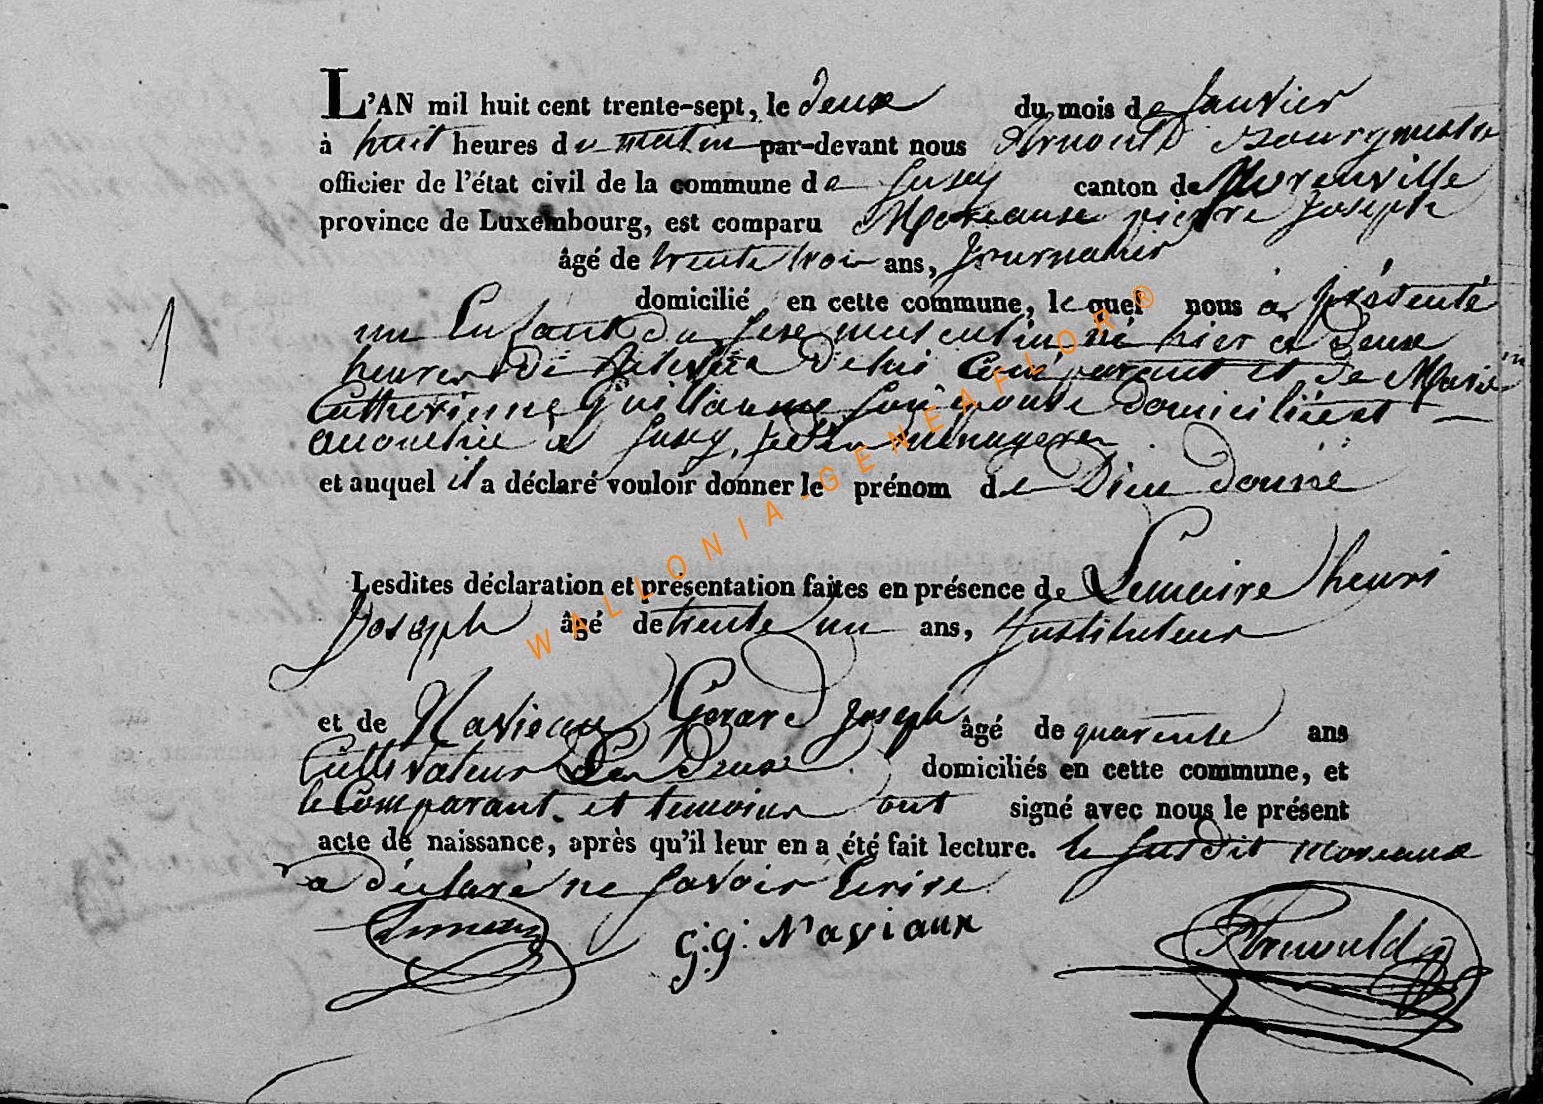 L'AN mil huit cent trente-sept, le deux du mois de Janvier
à huit heures du matin par-devant nous Arnould Bourgmestre
officier de l'état civil de la commune de Jusey canton de
province de Luxembourg, est comparu Moreaux pierre Joseph
âgé de trente trois ans, Journalier
domicilié en cette commune, le quel nous a présenté
1
un Enfant du sexe masculin né hier à deux
heures de de lui Comparant et de Marie
Catherine Guillaume son épouse domiciliée et
à Jusey, ménagere
et auquel il a déclaré vouloir donner le prénom de Dieu donné
Lesdites déclaration et présentation faites en présence de Lemaire henri
Joseph âgé de trente un ans, Instituteur
et de Naviaux Gerard Joseph âgé de quarente ans
Cultivateur Les deux domiciliés en cette commune, et
le Comparant et temoins ont signé avec nous le présent
acte de naissance, après qu'il leur en a été fait lecture. le susdit moreaux
a déclaré ne savoir Ecrire
G:g: Naviaux Arnould
WALLONIA-GENEAFLOR®